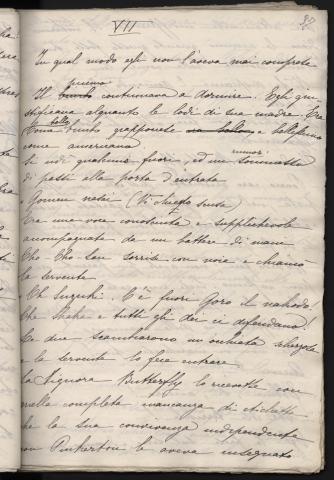 VII
37
In qual modo egli non l'aveva mai compresa
primo
Il bimbo continuava a dormire. Egli giu
stificava alquanto le lodi di sua madre. Era
bello
come bimbo giapponese e bellissimo
come americano
Si udì qualcuno fuori, ed un sommesso
rumor:
di passi alla porta d'entrata
"Gomen nasai (Vi chieggo scusa)
Era una voce conosciuta e supplichevole
accompagnata da un battere di mani
Cho-Cho-San sorrise con noia e chiamò
la servente
Oh Suzuki! C'è fuori Goro il nakodo!
Che Shaka e tutti gli dei ci difendano!
Le due scambiarono un'occhiata scherzosa
e la servente lo fece entrare
La Signora Butterfly lo ricevette con
quella completa mancanza di etichetta
che la sua convivenza independente
con Pinkerton le aveva insegnato